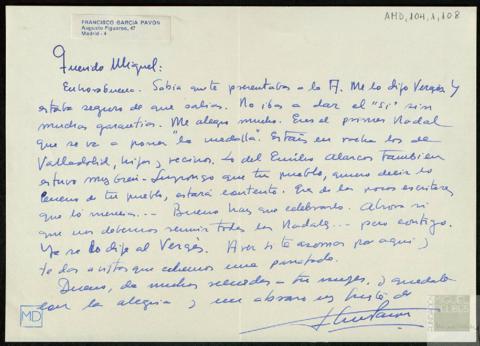 FRANCISCO GARCIA PAVON
Augusto Figueroa, 47
Madrid - 4
AMD, 104, 1, 108
Querido Miguel:
Enhorabuena. Sabía que te presentabas a la A. Me lo dijo Vergés y
estaba seguro de que salías. No ibas a dar el "sí" sin
muchas garantías. Me alegro mucho. Eres el primer Nadal
que se va a poner "la medalla". Estáis en racha los de
Valladolid, hijos y vecinos. Lo del Emilio Alarcos también
estuvo muy bien. Supongo que tu pueblo, quiero decir lo
bueno de tu pueblo, estará contento. Eres de los pocos escritores
que lo merecen... Bueno hay que celebrarlo. Ahora sí
que nos debemos reunir todos los Nadales... pero contigo.
Ya se lo dije al Vergés. A ver si te asomas por aquí y
echemos una
Bueno, da muchos recuerdos a tu mujer, y quédate
con la alegría y un abrazo de
MD